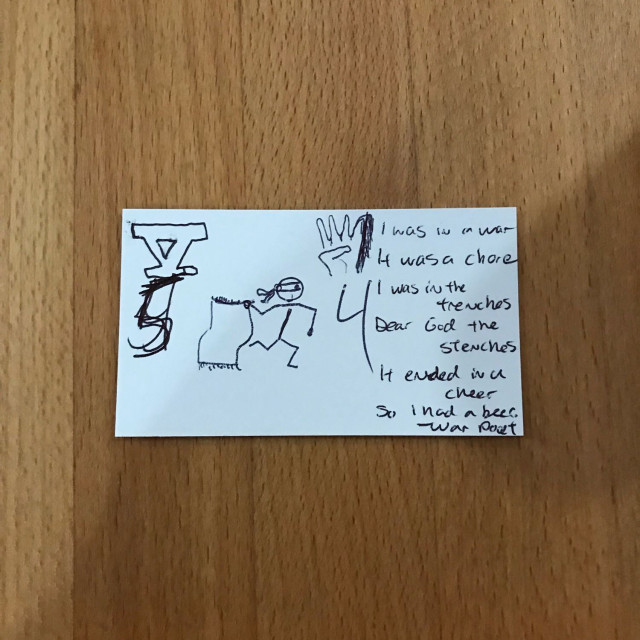 V
5
4
I was in a war
It was a chore
I was in the
trenches
Dear God the
stenches
It ended in a
cheer
So I had a beer.
-War Poet